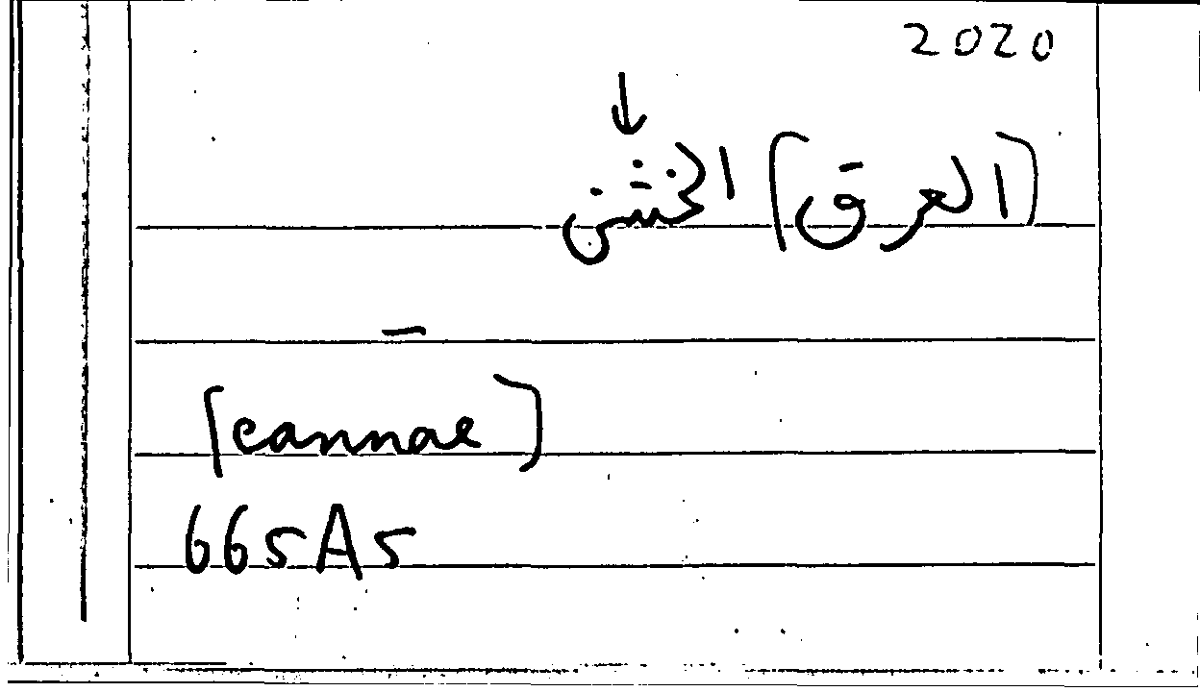 2020
↓
[العرق] الخشن
–
[cannae]
665A5